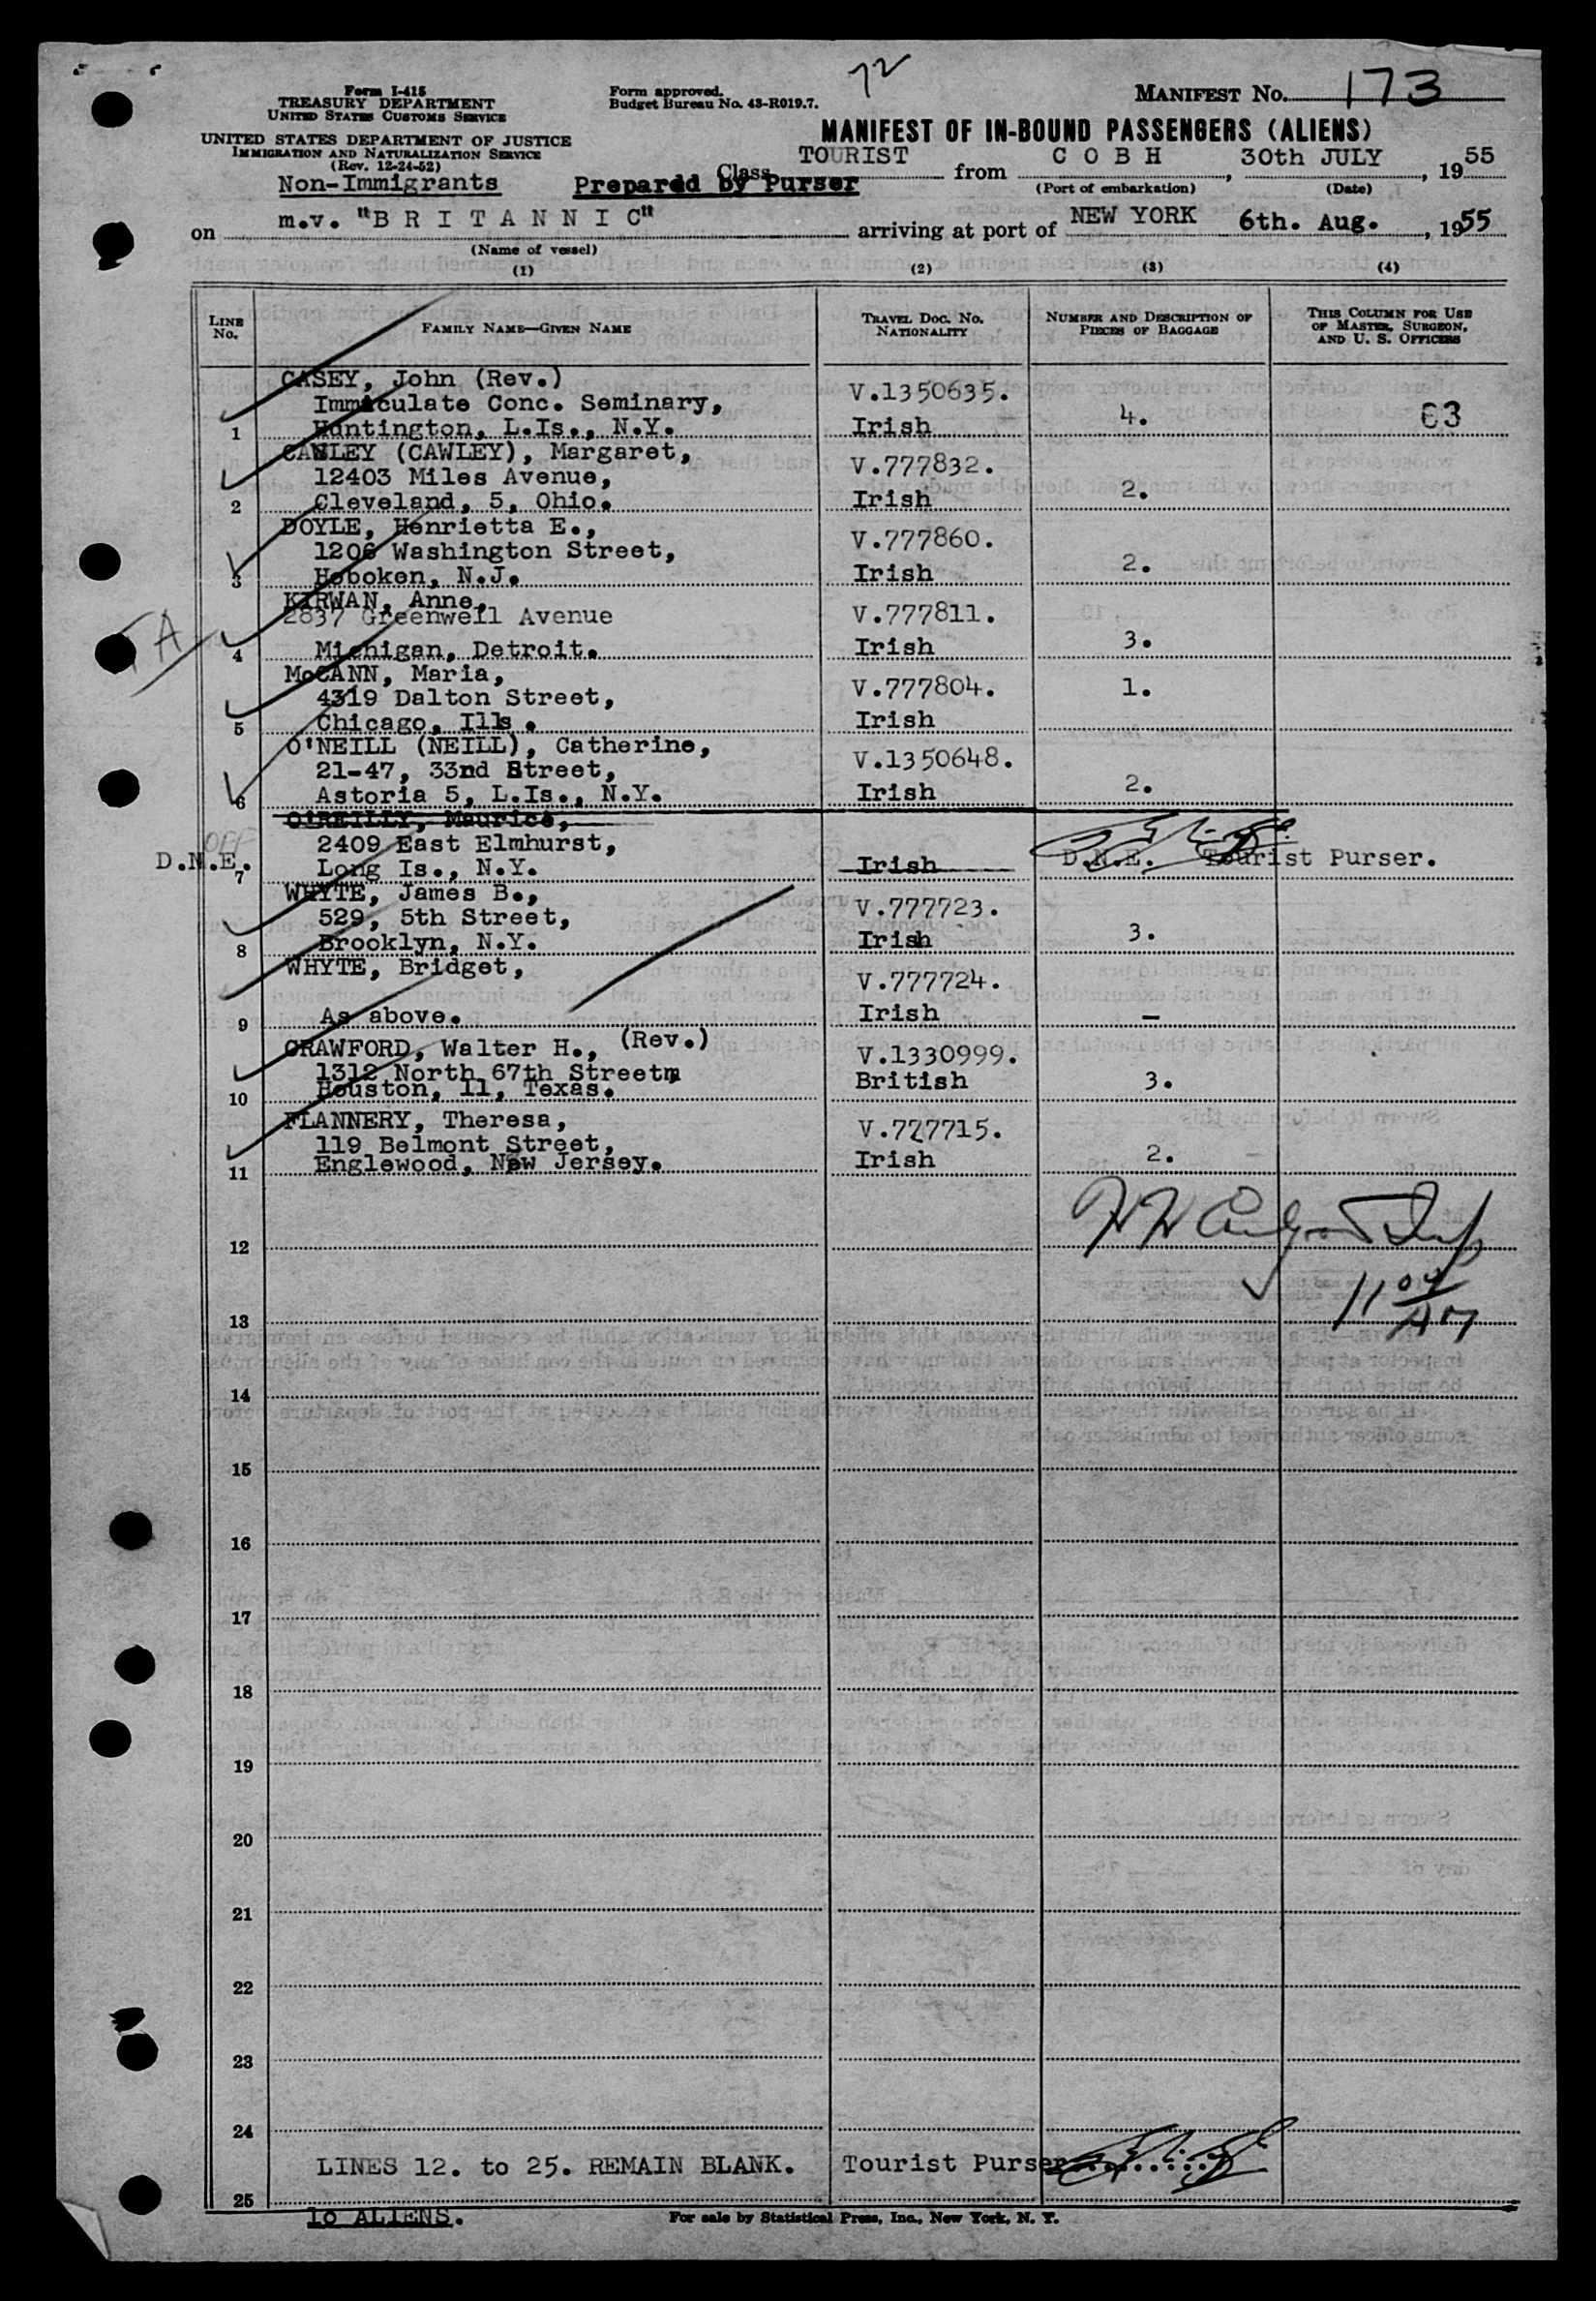 72
Form I-415
TREASURY DEPARTMENT
UNITED STATES CUSTOMS SERVICE
UNITED STATES DEPARTMENT OF JUSTICE
IMMIGRATION AND NATURALIZATION SERVICE
(Rev. 12-24-52)
Form approved.
Budget Bureau No. 43-R019.7.
MANIFEST NO. 173
MANIFEST OF IN-BOUND PASSENGERS (ALIENS)
Non-Immigrants Prepared by Purser Class TOURIST from COBH, 30th JULY, 1955
(Port of embarkation) (Date)
on m.v. "BRITANNIC" arriving at port of NEW YORK 6th. Aug., 1955
(Name of vessel)
(1) (2) (3) (4)
LINE NO.
FAMILY NAME—GIVEN NAME
TRAVEL DOC. NO. NATIONALITY
NUMBER AND DESCRIPTION OF PIECES OF BAGGAGE
THIS COLUMN FOR USE OF MASTER, SURGEON, AND U. S. OFFICERS
CASEY, John (Rev.)
Immaculate Conc. Seminary, V.1350635.
1 Huntington, L.Is., N.Y. Irish 4. 63
CAWLEY (CAWLEY), Margaret,
12403 Miles Avenue, V.777832.
2 Cleveland, 5, Ohio. Irish 2.
DOYLE, Henrietta E.,
1206 Washington Street, V.777860.
3 Hoboken, N.J. Irish 2.
KIRWAN, Anne,
2837 Greenwell Avenue V.777811.
4 Michigan, Detroit. Irish 3.
McCANN, Maria,
4319 Dalton Street, V.777804. 1.
5 Chicago, Ills. Irish
O'NEILL (NEILL), Catherine,
21-47, 33nd Street, V.1350648.
6 Astoria 5, L.Is., N.Y. Irish 2.
O'REILLY, Maurice,
OFF 2409 East Elmhurst,
D.N.E. 7 Long Is., N.Y. Irish D.N.E. Tourist Purser.
WHYTE, James B.,
529, 5th Street, V.777723.
8 Brooklyn, N.Y. Irish 3.
WHYTE, Bridget,
V.777724.
9 As above. Irish –
CRAWFORD, Walter H., (Rev.)
1312 North 67th Street, V.1330999.
10 Houston, 11, Texas. British 3.
FLANNERY, Theresa,
119 Belmont Street, V.727715.
11 Englewood, New Jersey. Irish 2.
12
11 04 AM
13
14
15
16
17
18
19
20
21
22
23
24
LINES 12. to 25. REMAIN BLANK. Tourist Purser
25
10 ALIENS.
For sale by Statistical Press, Inc., New York, N. Y.